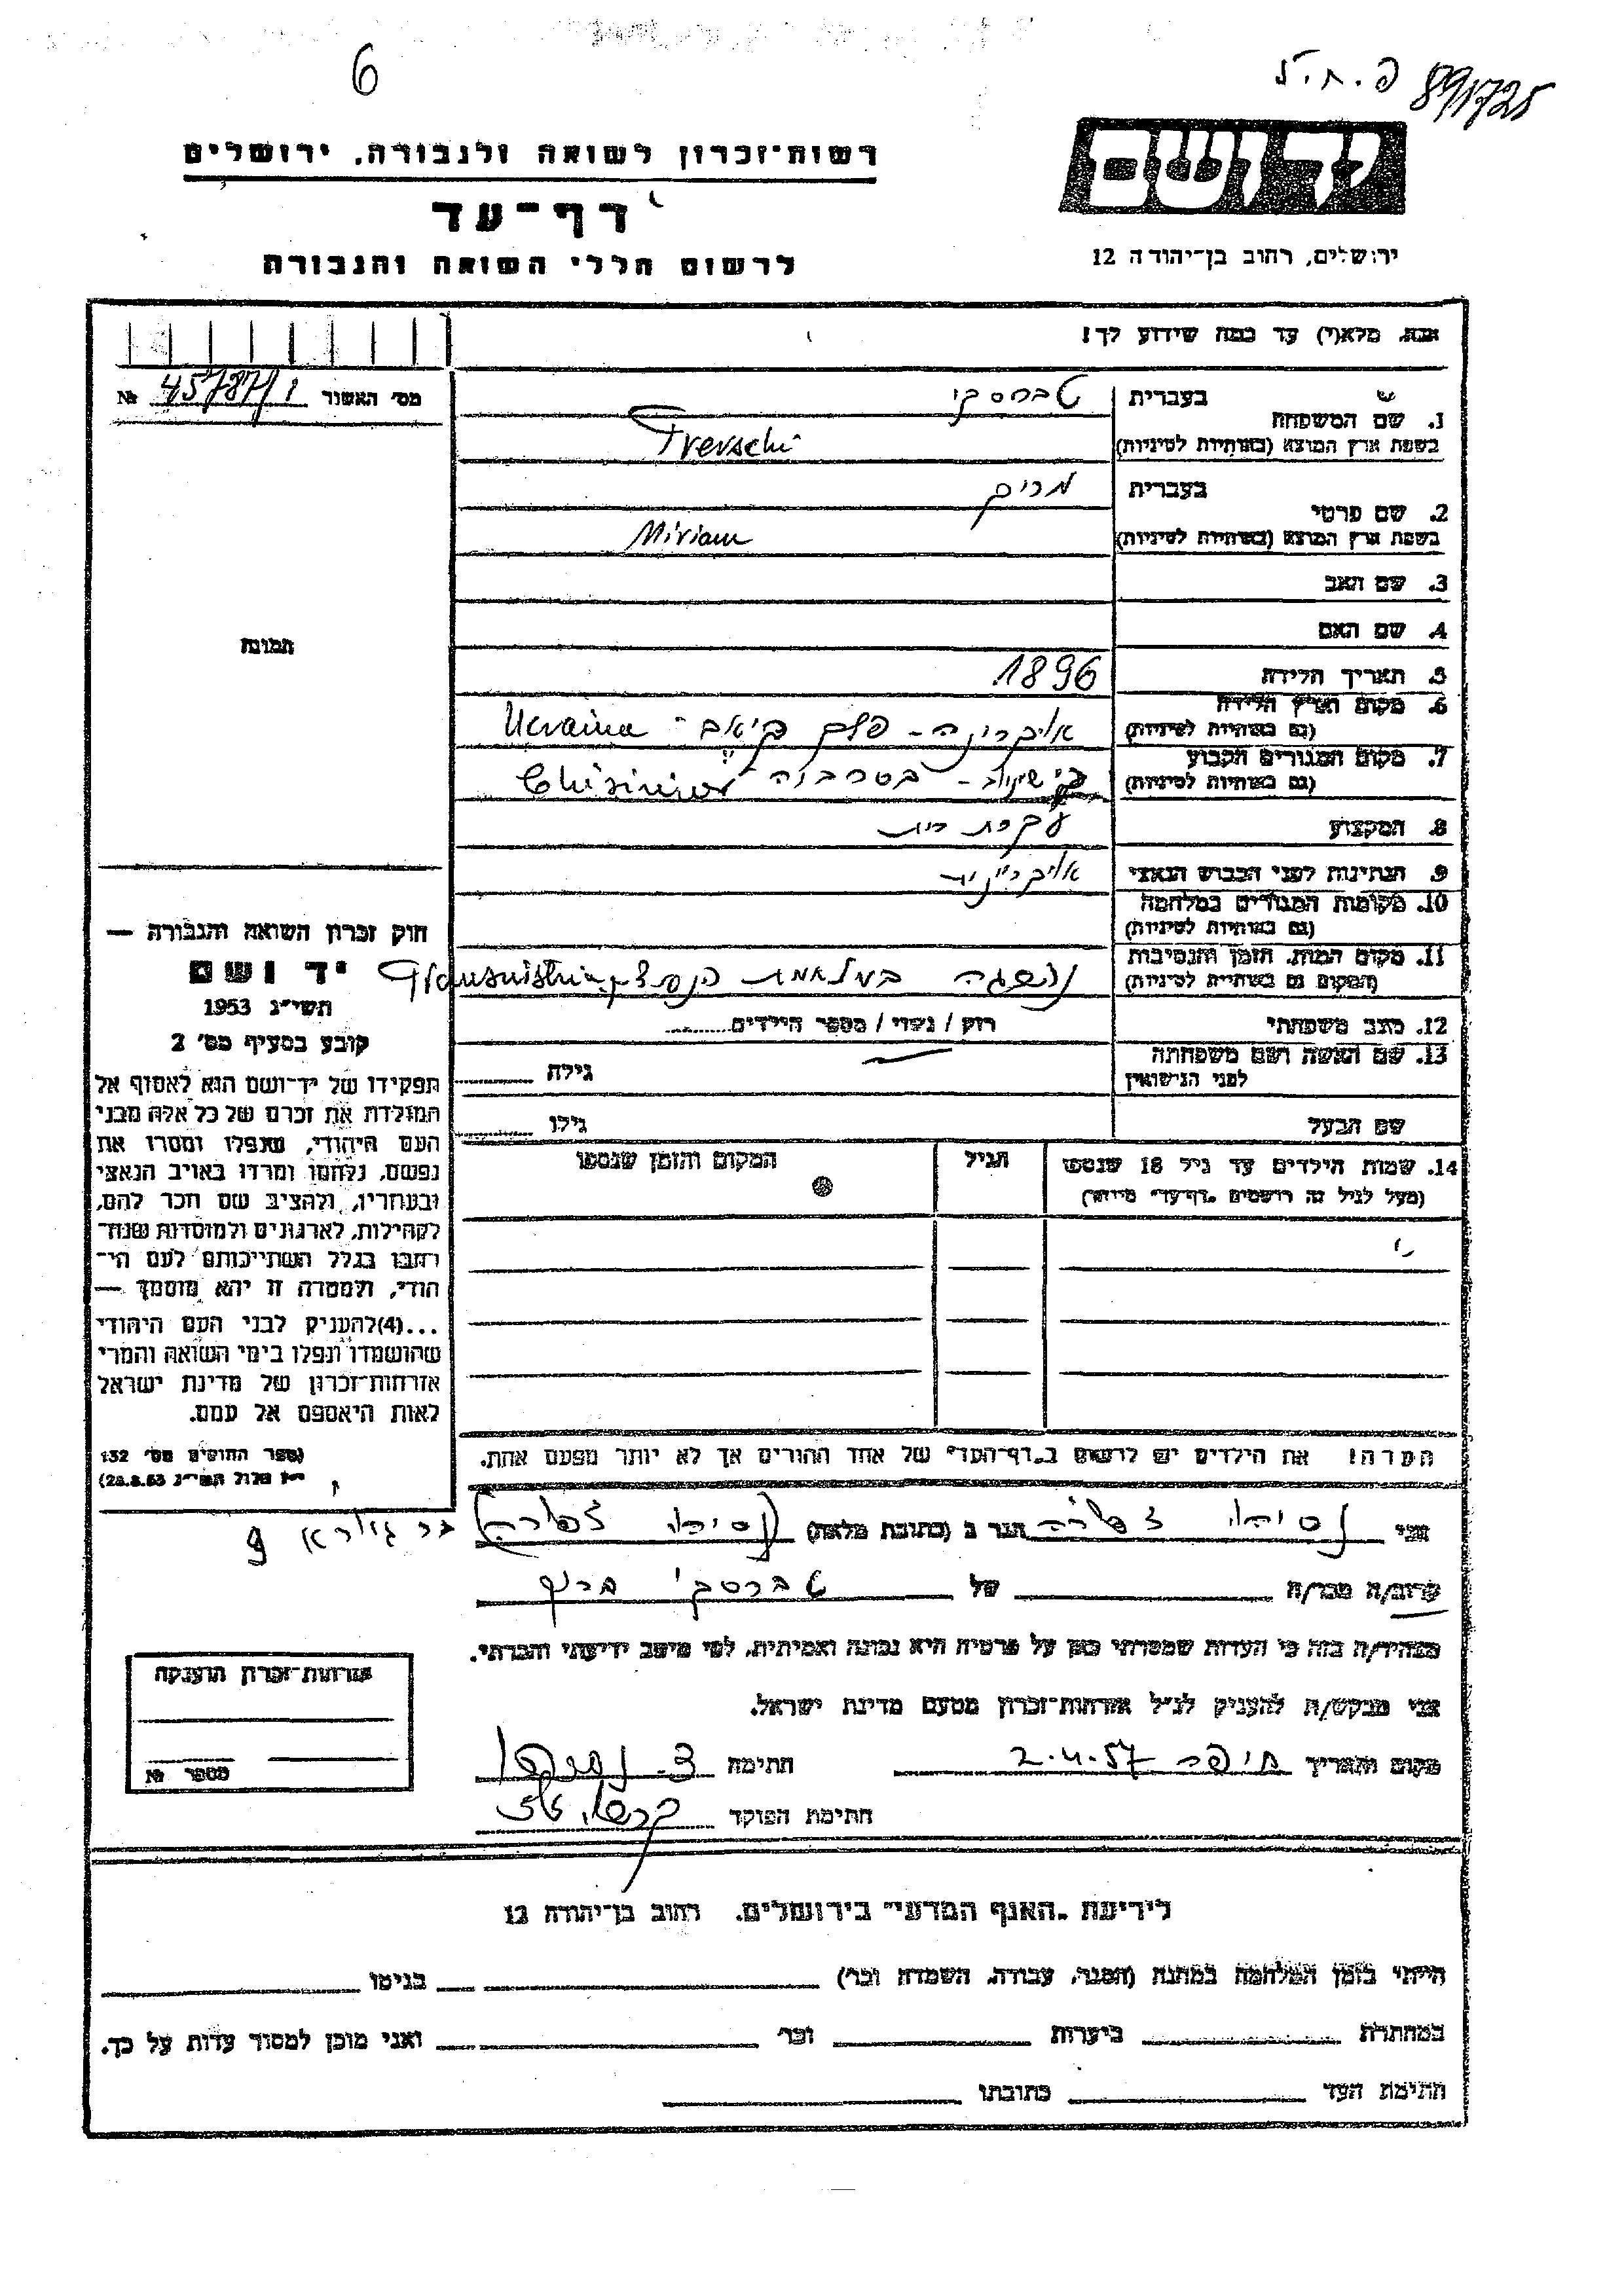 6
פ.ח.ל 891725
רשות־זכרון לשואה ולגבורה, ירושלים
יד ושם
דף־עד
לרשום חללי השואה והגבורה
ירושלים, רחוב בן־יהודה 12
אנא, מלא(י) עד כמה שידוע לך!
מס' האשור 45787/1 №
בעברית
1. שם המשפחה
בשפת ארץ המוצא (באותיות לטיניות)
בעברית מרים
2. שם פרטי
בשפת ארץ המוצא (באותיות לטיניות) Miriam
3. שם האב
4. שם האם
5. תאריך הלידה 1896
6. מקום וארץ הלידה
(גם באותיות לטיניות) אוקרינה - פלך Ucraina
7. מקום המגורים הקבוע
(גם באותיות לטיניות)
8. המקצוע עקרת בית
9. הנתינות לפני הכבוש הנאצי
10. מקומות המגורים במלחמה
(גם באותיות לטיניות)
11. מקום המות, הזמן והנסיבות
(המקום גם באותיות לטיניות) Transnistria
12. מצב משפחתי רוק / נשוי / מספר הילדים
13. שם האשה ושם משפחתה
לפני הנישואין גילה
שם הבעל גילו
14. שמות הילדים עד גיל 18 שנספו הגיל המקום והזמן שנספו
(מעל לגיל זה רושמים „דף־עד" מיוחד)
הערה! את הילדים יש לרשום ב„דף־העד" של אחד ההורים אך לא יותר מפעם אחת.
תמונה
חוק זכרון השואה והגבורה —
יד ושם
תשי"ג 1953
קובע בסעיף מס' 2
תפקידו של יד־ושם הוא לאסוף אל
המולדת את זכרם של כל אלה מבני
העם היהודי, שנפלו ומסרו את
נפשם, נלחמו ומרדו באויב הנאצי
ובעוזריו, ולהציב שם וזכר להם,
לקהילות, לארגונים ולמוסדות שנח־
רבו בגלל השתייכותם לעם הי־
הודי, ולמטרה זו יהא מוסמך —
...(4)להעניק לבני העם היהודי
שהושמדו ונפלו בימי השואה והמרי
אזרחות־זכרון של מדינת ישראל
לאות היאספם אל עמם.
(ספר החוקים מס' 132
י"ז אלול תשי"ג 28.8.53)
אני הגר ב (כתובת מלאה) בר גיורא 9
קרוב/ה מכר/ה של
מצהיר/ה בזה כי העדות שמסרתי כאן על פרטיה היא נכונה ואמיתית, לפי מיטב ידיעתי והכרתי.
אני מבקש/ת להעניק לנ"ל אזרחות־זכרון מטעם מדינת ישראל.
מקום ותאריך חיפה 2.4.57 חתימה
חתימת הפוקד
אזרחות־זכרון הוענקה
מספר №
לידיעת „האגף המדעי" בירושלים, רחוב בן־יהודה 12
הייתי בזמן המלחמה במחנה (הסגר, עבודה, השמדה וכו') בגיטו
במחתרת ביערות וכו' ואני מוכן למסור עדות על כך.
חתימת העד כתובתו